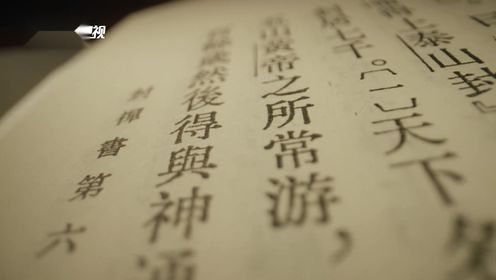 视
上泰山封
封居七千。〔一〕天下
山黃帝之所常游，
餘歲然後得與神通
封禪書第六